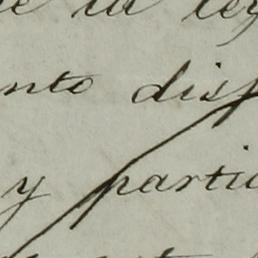 de la ley
nto disp
y partic